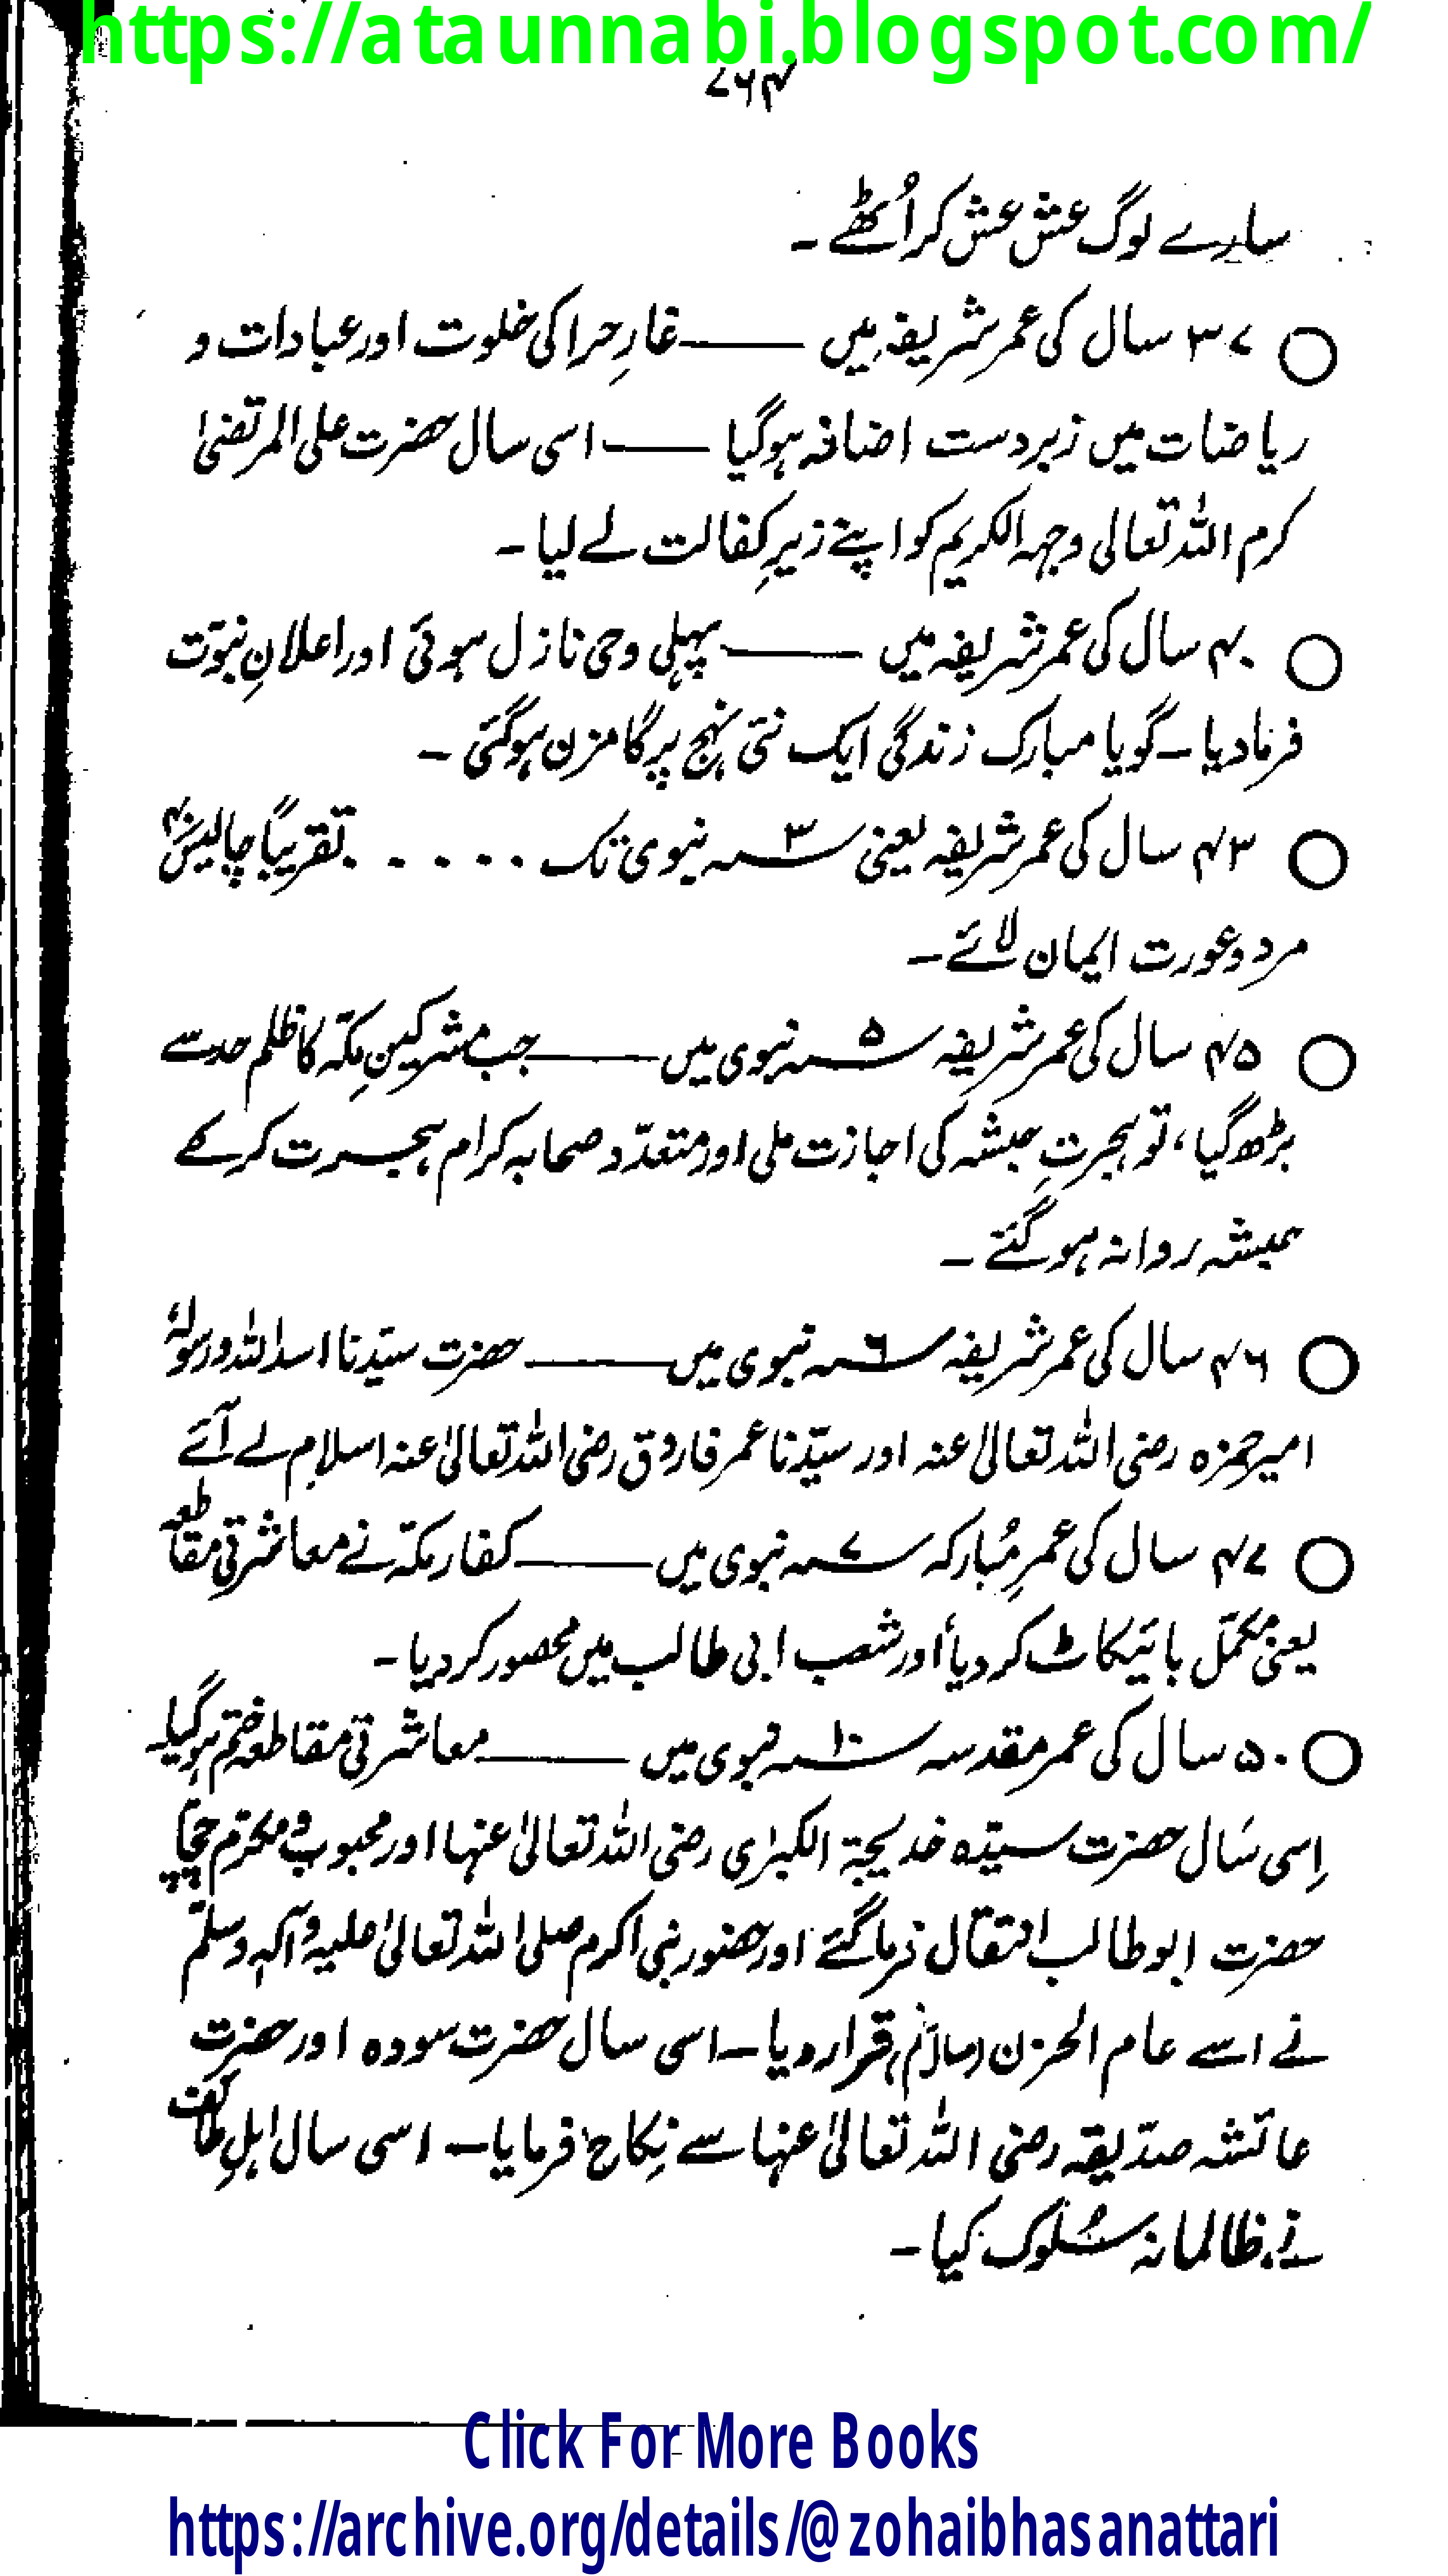 https://ataunnabi.blogspot.com/
۷۶۴
سارے لوگ عش عش کر اُٹھے ۔
۳۷ سال کی عمر شریفہ میں ——— غارِ حرا کی خلوت اور عبادات و
ریاضات میں زبردست اضافہ ہوگیا ——— اسی سال حضرت علی المرتضیٰ
کرم اللہ تعالی وجہہ الکریم کو اپنے زیرِ کفالت لے لیا ۔
۴۰ سال کی عمر شریفہ میں ——— پہلی وحی نازل ہوئی اور اعلانِ نبوّت
فرمادیا ۔ گویا مبارک زندگی ایک نئی نہج پر گامزن ہوگئی ۔
۴۳ سال کی عمر شریفہ یعنی ۳؁ نبوی تک ..... تقریباً چالیس ۴۰
مرد و عورت ایمان لائے ۔
۴۵ سال کی عمر شریفہ ۵؁ نبوی میں ——— جب مشرکینِ مکّہ کا ظلم حد سے
بڑھ گیا، تو ہجرتِ حبشہ کی اجازت ملی اور متعدّد صحابہ کرام ہجرت کرکے
حبشہ روانہ ہوگئے ۔
۴۶ سال کی عمر شریفہ ۶؁ نبوی میں ——— حضرت سیّدنا اسد اللہ و رسولہٖ
امیر حمزہ رضی اللہ تعالیٰ عنہ اور سیّدنا عمر فاروق رضی اللہ تعالیٰ عنہ اسلام لے آئے
۴۷ سال کی عمرِ مُبارکہ ۷؁ نبوی میں ——— کفار مکّہ نے معاشرتی مقاطعہ
یعنی مکمّل بائیکاٹ کردیا اور شعب ابی طالب میں محصور کردیا ۔
۵۰ سال کی عمر مقدسہ ۱۰؁ نبوی میں ——— معاشرتی مقاطعہ ختم ہوگیا۔
اِسی سَال حضرت سیّدہ خدیجۃ الکبرٰی رضی اللہ تعالیٰ عنہا اور محبوب و مکرّم چچا
حضرت ابوطالب انتقال فرماگئے اور حضور نبی اکرم صلی اللہ تعالیٰ علیہ وآلہٖ وسلّم
نے اسے عام الحزن (سالِ غم) قرار دیا ۔ اسی سال حضرت سودہ اور حضرت
عائشہ صدّیقہ رضی اللہ تعالیٰ عنہا سے نِکاح فرمایا ۔ اسی سال اہلِ طائف
نے ظالمانہ سُلوک کیا ۔
Click For More Books
https://archive.org/details/@zohaibhasanattari